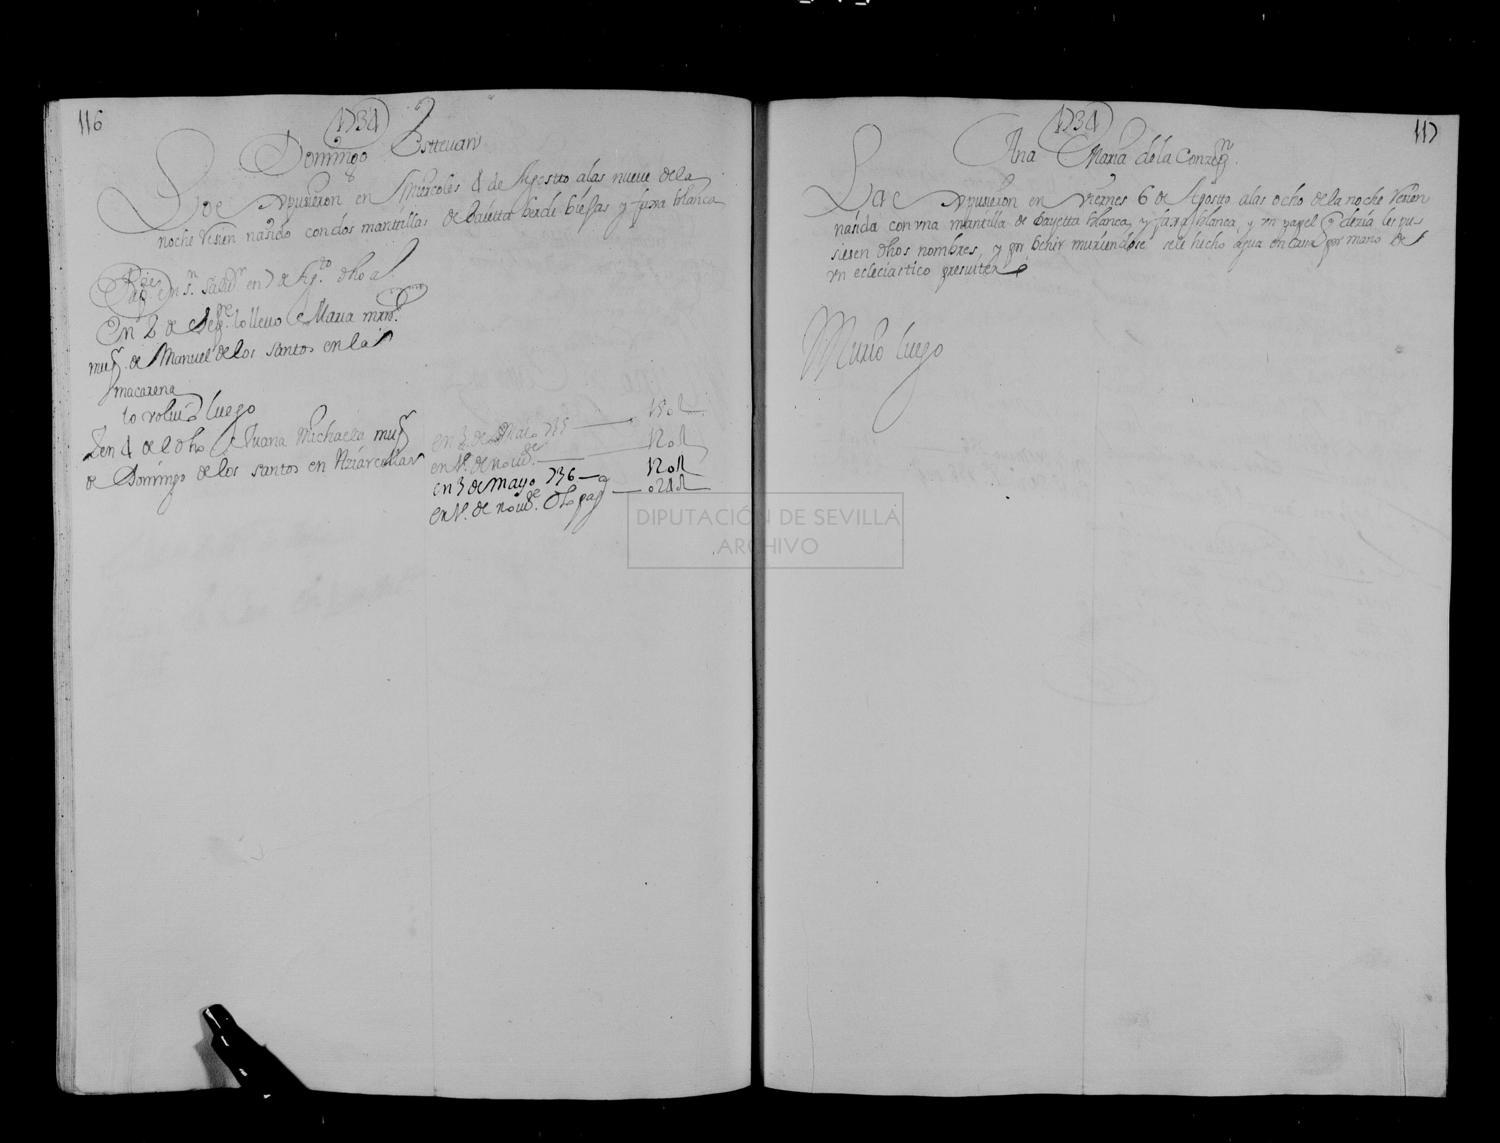 116
1734
Domingo Esttevan
Que expusieron en Miercoles 4 de Agostto alas nueve de la
noche resien nasido con dos mantillas de baietta berde biejas y faxa blanca
Bap. en S. Salvr. en 7 de Agto. dho a.
En 2 de Sepe. lo llevo Maria
mugr. de Manuel de los santos en la
macarena
lo volvio luego
en 4 de l dho Juana Michaela mugr
de Domingo de los santos en
en 3 de Maio 735 — 150 R
en 1º. de novde. — 120 R
en 3 de Mayo 736 — 120 R
en 1º. de novde. dho pag — 024 R
1734
117
Ana Maria de la Conzepn.
Que expusieron en viernes 6 de Agosto a las ocho de la noche resien
nasida con vna mantilla de bayetta blanca, y faxa blanca, y vn papel q dezia les pu-
siesen dhos nombres, y por benir muriendose se le hecho agua en casa por mano de
vn eclesiastico presvitero
Murio luego
DIPUTACIÓN DE SEVILLA
ARCHIVO